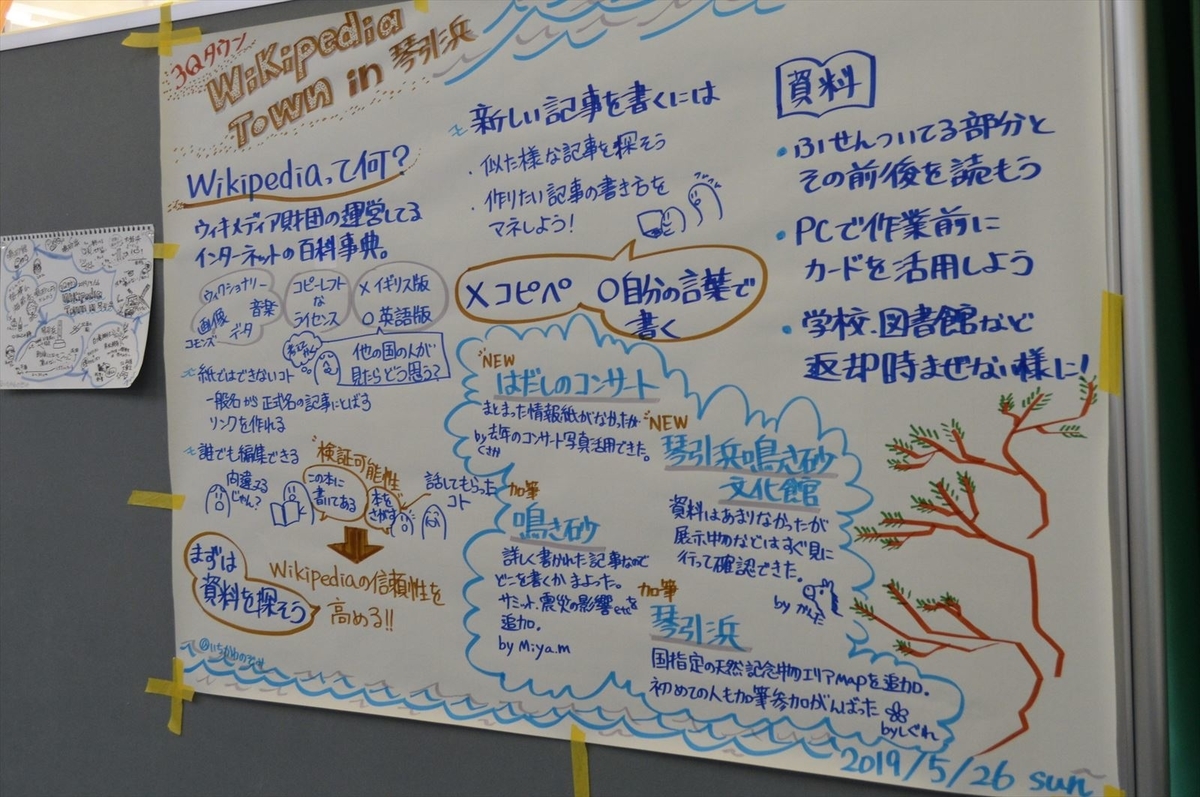 3Qタウン
Wikipedia
Town in 琴引浜
Wikipediaって何?
ウィキメディア財団の運営してる
インターネットの百科事典。
ウィクショナリー
画像 音楽
コモンズ データ
コピーレフト
な
ライセンス
×イギリス版
○英語版
他の国の人が
見たらどう思う?
紙ではできないコト
一般名から正式名の記事にとばす
リンクを作れる
誰でも編集できる
内違える
じゃん?
検証可能性
この本に
書いてある
本を
さがす
話してもらった
コト
まずは
資料を探そう
Wikipediaの信頼性を
高める!!
新しい記事を書くには
・似た様な記事を探そう
・作りたい記事の書き方を
マネしよう!
×コピペ ○自分の言葉で
書く
NEW
はだしのコンサート
まとまった情報紙がなかったが
去年のコンサート写真活用できた。
by
加筆
鳴き砂
詳しく書かれた記事なので
どこを書くかまよった。
サミット、震災の影響etcを
追加。
by Miya.m
NEW
琴引浜鳴き砂
文化館
資料はあまりなかったが
展示物などはすぐ見に
行って確認できた。
by かんた
加筆
琴引浜
国指定の天然記念物エリアMAPを追加。
初めての人も加筆参加がんばった
byしぐれ
資料
・ふせんついてる部分と
その前後を読もう
・PCで作業前に
カードを活用しよう
・学校、図書館など
返却時まぜない様に!
2019/5/26 sun